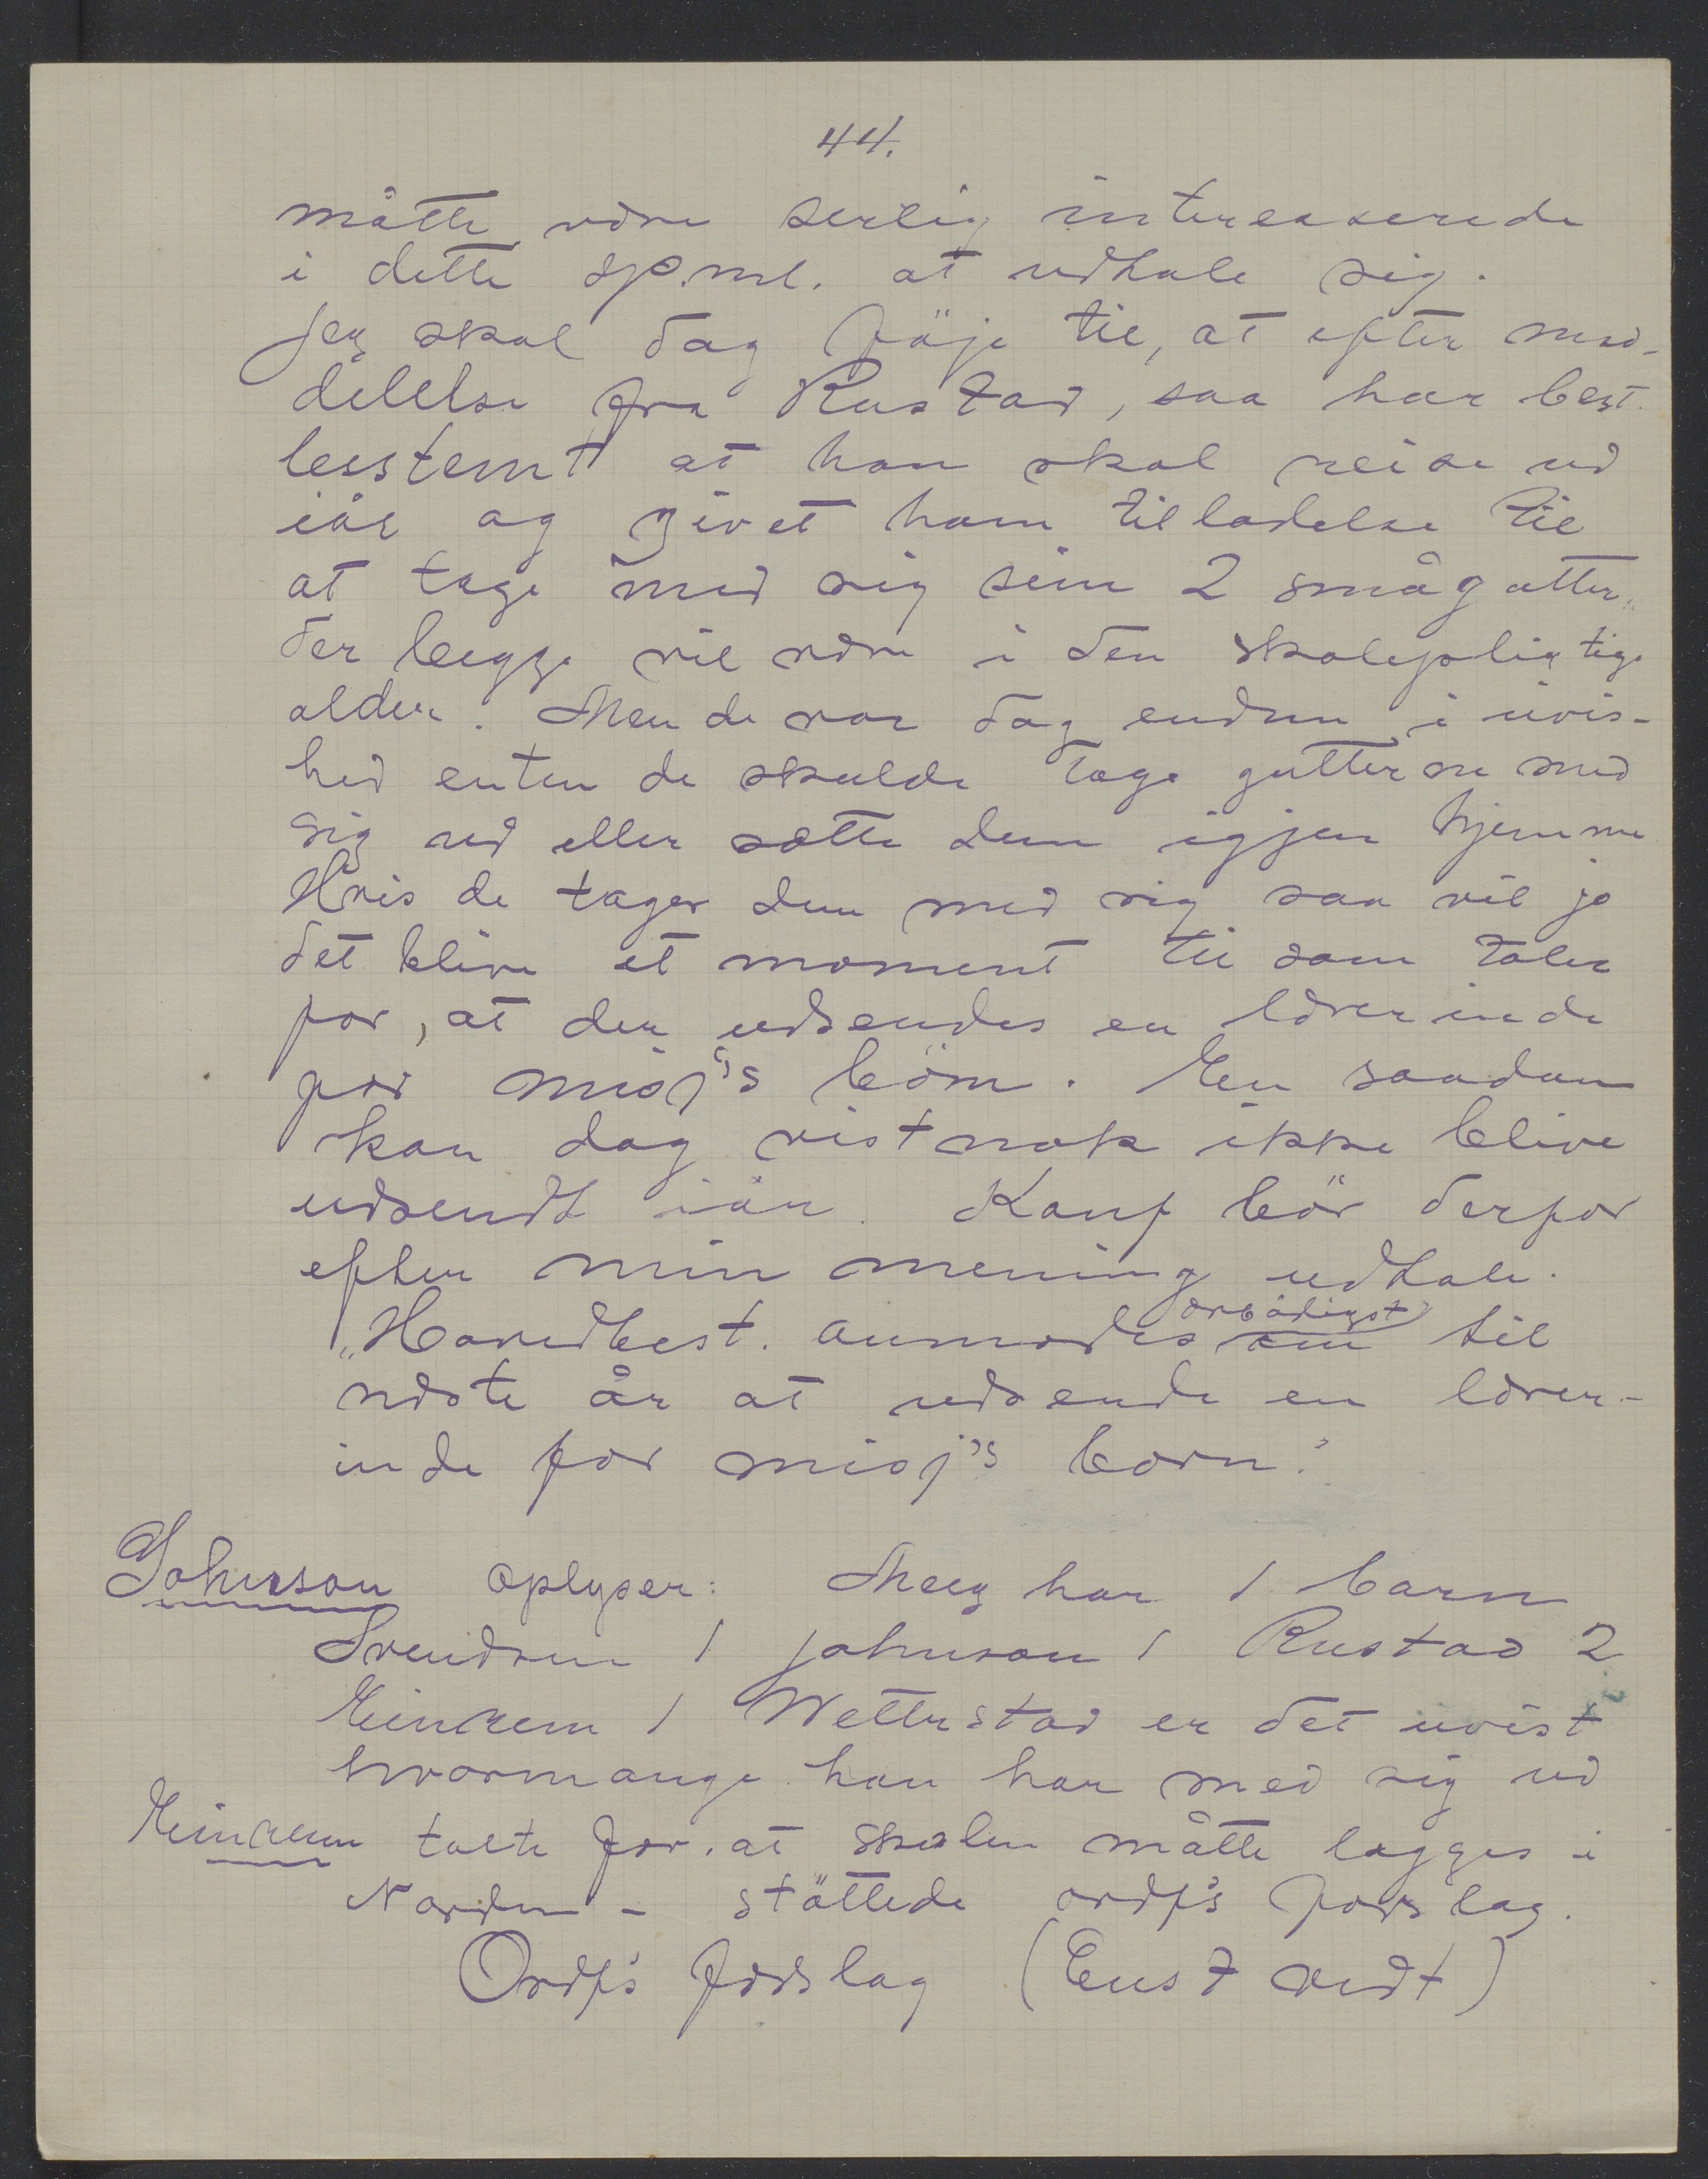 44.
måtte være serlig interesserede
i dette sp.ml. at udtale sig.
Jeg skal dog föje til, at efter med-
delelse fra Rustad, saa har best.
besstemt at han skal reise ud
iår og givet ham tilladelse til
at tage med sig sine 2 smågutter.
der begge vil være i den skolepligtige
alder. Men de var dog endnu i uvis-
hed enten de skulde tage gutterne med
sig ud eller sætte dem igjen hjemme
Hvis de tager dem med sig saa vil jo
det blive et moment til som taler
for, at der udsendes en lærerinde
for misj's börn. En saadan
kan dog vistnok ikke blive
udsendt iår. Konf bör derfor
efter min mening udtale.
„Hovedbest. anmodes ærbödigst om til
næste år at udsende en lærer-
inde for misj's born."
Johnson oplyser: Meeg har 1 barn
Svendsen 1 Johnson 1 Rustad 2
Einrem 1 Wetterstad er det uvist
hvormange han har med sig ud
Einrem talte for. at skolen måtte lægges i
Norden - stöttede ordf's forslag.
Ordf's forslag (Enst vedt)